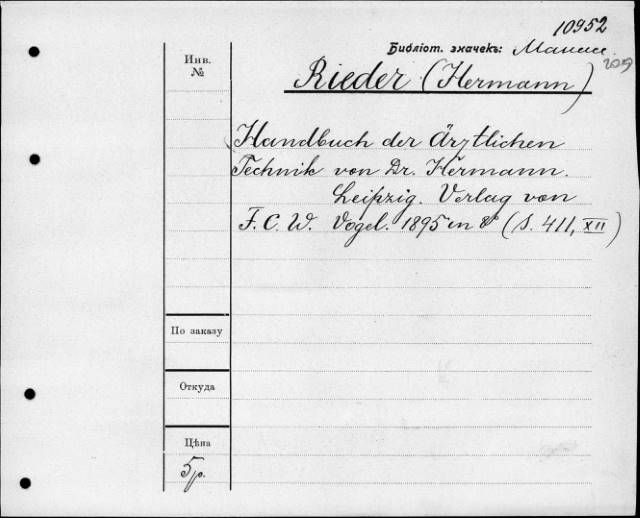 10952
Библіот. значекъ:
2029
Инв.
№
Rieder (Hermann)
Handbuch der Ärztlichen
Technik von Dr. Hermann.
Leipzig. Verlag von
F. C. W. Vogel. 1895 in 8° (S. 411, XII)
По заказу
Откуда
Цѣна
5 р.